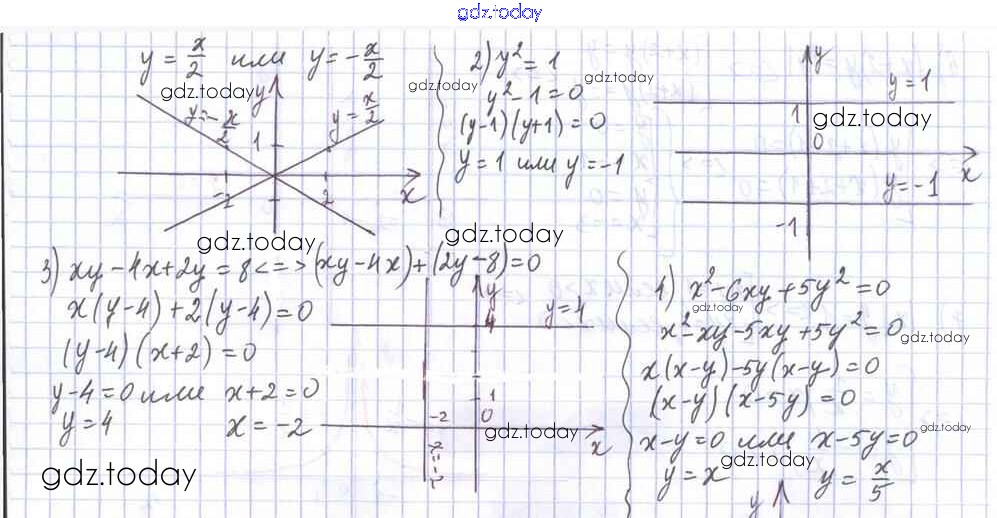 gdz.today
y = x/2 или y = -x/2
gdz.today y
y = -x/2
y = x/2
1
-2 2 x
gdz.today
2) y² = 1
gdz.today gdz.today
y² - 1 = 0
(y-1)(y+1) = 0
y = 1 или y = -1
gdz.today
y
y = 1
1 gdz.today
0
x
y = -1
-1
3) xy - 4x + 2y = 8 <=> (xy - 4x) + (2y - 8) = 0
x(y-4) + 2(y-4) = 0
(y-4)(x+2) = 0
y-4 = 0 или x+2 = 0
y = 4 x = -2
gdz.today
y
4 y = 4
1
-2 0
gdz.today
x
x = -2
4) x² - 6xy + 5y² = 0
gdz.today
x² - xy - 5xy + 5y² = 0
gdz.today
x(x-y) - 5y(x-y) = 0
(x-y)(x-5y) = 0
x-y = 0 или x-5y = 0
gdz.today
gdz.today
y = x y = x/5
y